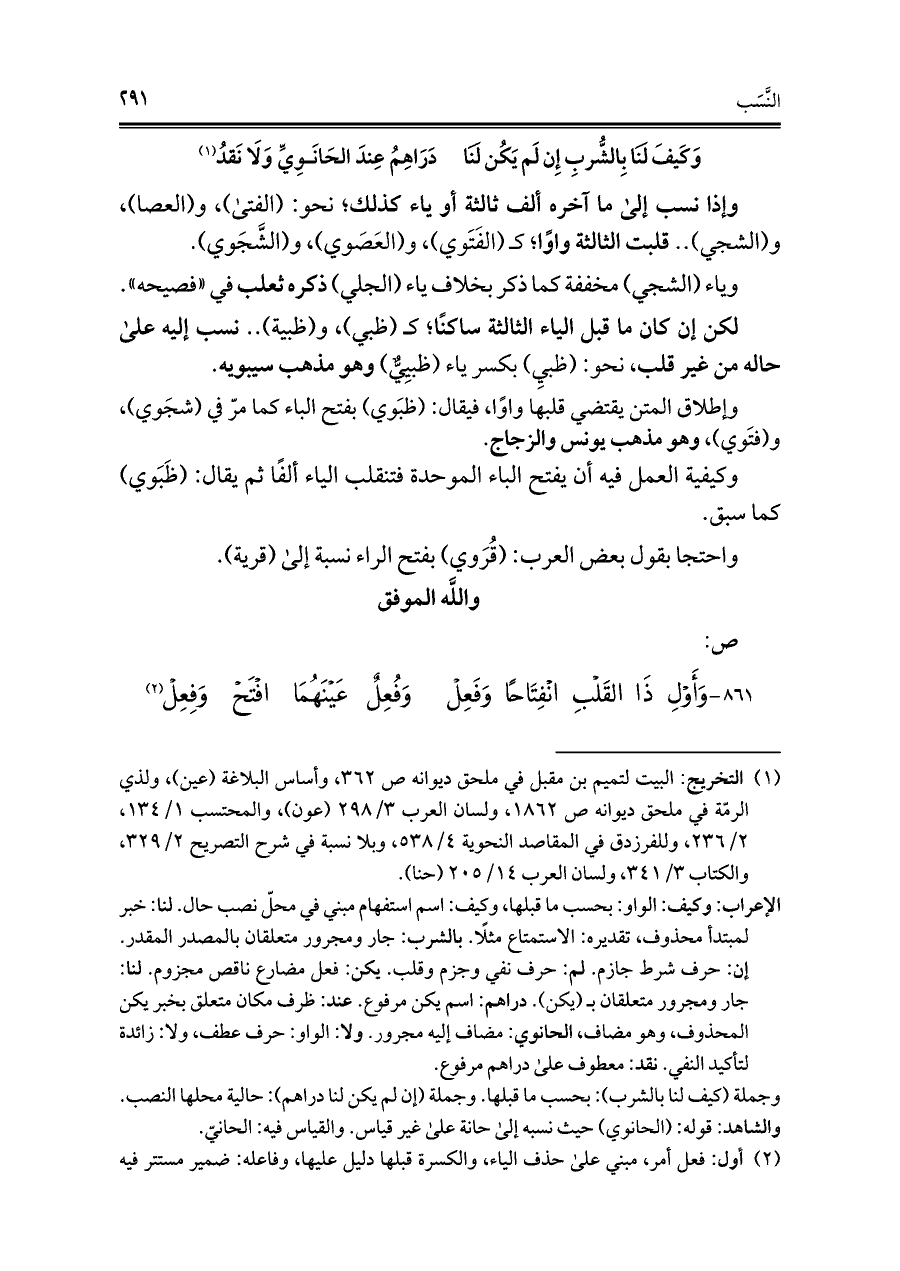 النَّسَب ٢٩١
وَكَيفَ لَنَا بِالشُّربِ إِن لَم يَكُن لَنَا دَرَاهِمُ عِندَ الحَانَـوِيِّ وَلَا نَقدُ(١)
وإذا نسب إلىٰ ما آخره ألف ثالثة أو ياء كذلك؛ نحو: (الفتىٰ)، و(العصا)،
و(الشجي).. قلبت الثالثة واوًا؛ كـ (الفَتَوي)، و(العَصَوي)، و(الشَّجَوي).
وياء (الشجي) مخففة كما ذكر بخلاف ياء (الجلي) ذكره ثعلب في «فصيحه».
لكن إن كان ما قبل الياء الثالثة ساكنًا؛ كـ (ظبي)، و(ظبية).. نسب إليه علىٰ
حاله من غير قلب، نحو: (ظبيِ) بكسر ياء (ظبيِيٌّ) وهو مذهب سيبويه.
وإطلاق المتن يقتضي قلبها واوًا، فيقال: (ظبَوي) بفتح الباء كما مرّ في (شجَوي)،
و(فتَوي)، وهو مذهب يونس والزجاج.
وكيفية العمل فيه أن يفتح الباء الموحدة فتنقلب الياء ألفًا ثم يقال: (ظَبَوي)
كما سبق.
واحتجا بقول بعض العرب: (قُرَوي) بفتح الراء نسبة إلىٰ (قرية).
واللَّه الموفق
ص:
٨٦١-وَأَوْلِ ذَا القَلْبِ انْفِتَاحًا وَفَعِلْ وَفُعِلٌ عَيْنَهُمَا افْتَحْ وَفِعِلْ(٢)
(١) التخريج: البيت لتميم بن مقبل في ملحق ديوانه ص ٣٦٢، وأساس البلاغة (عين)، ولذي
الرمّة في ملحق ديوانه ص ١٨٦٢، ولسان العرب ٣/ ٢٩٨ (عون)، والمحتسب ١/ ١٣٤،
٢/ ٢٣٦، وللفرزدق في المقاصد النحوية ٤/ ٥٣٨، وبلا نسبة في شرح التصريح ٢/ ٣٢٩،
والكتاب ٣/ ٣٤١، ولسان العرب ١٤/ ٢٠٥ (حنا).
الإعراب: وكيف: الواو: بحسب ما قبلها، وكيف: اسم استفهام مبني في محلّ نصب حال. لنا: خبر
لمبتدأ محذوف، تقديره: الاستمتاع مثلًا. بالشرب: جار ومجرور متعلقان بالمصدر المقدر.
إن: حرف شرط جازم. لم: حرف نفي وجزم وقلب. يكن: فعل مضارع ناقص مجزوم. لنا:
جار ومجرور متعلقان بـ (يكن). دراهم: اسم يكن مرفوع. عند: ظرف مكان متعلق بخبر يكن
المحذوف، وهو مضاف، الحانوي: مضاف إليه مجرور. ولا: الواو: حرف عطف، ولا: زائدة
لتأكيد النفي. نقد: معطوف علىٰ دراهم مرفوع.
وجملة (كيف لنا بالشرب): بحسب ما قبلها. وجملة (إن لم يكن لنا دراهم): حالية محلها النصب.
والشاهد: قوله: (الحانوي) حيث نسبه إلىٰ حانة علىٰ غير قياس. والقياس فيه: الحانيّ.
(٢) أول: فعل أمر، مبني علىٰ حذف الياء، والكسرة قبلها دليل عليها، وفاعله: ضمير مستتر فيه